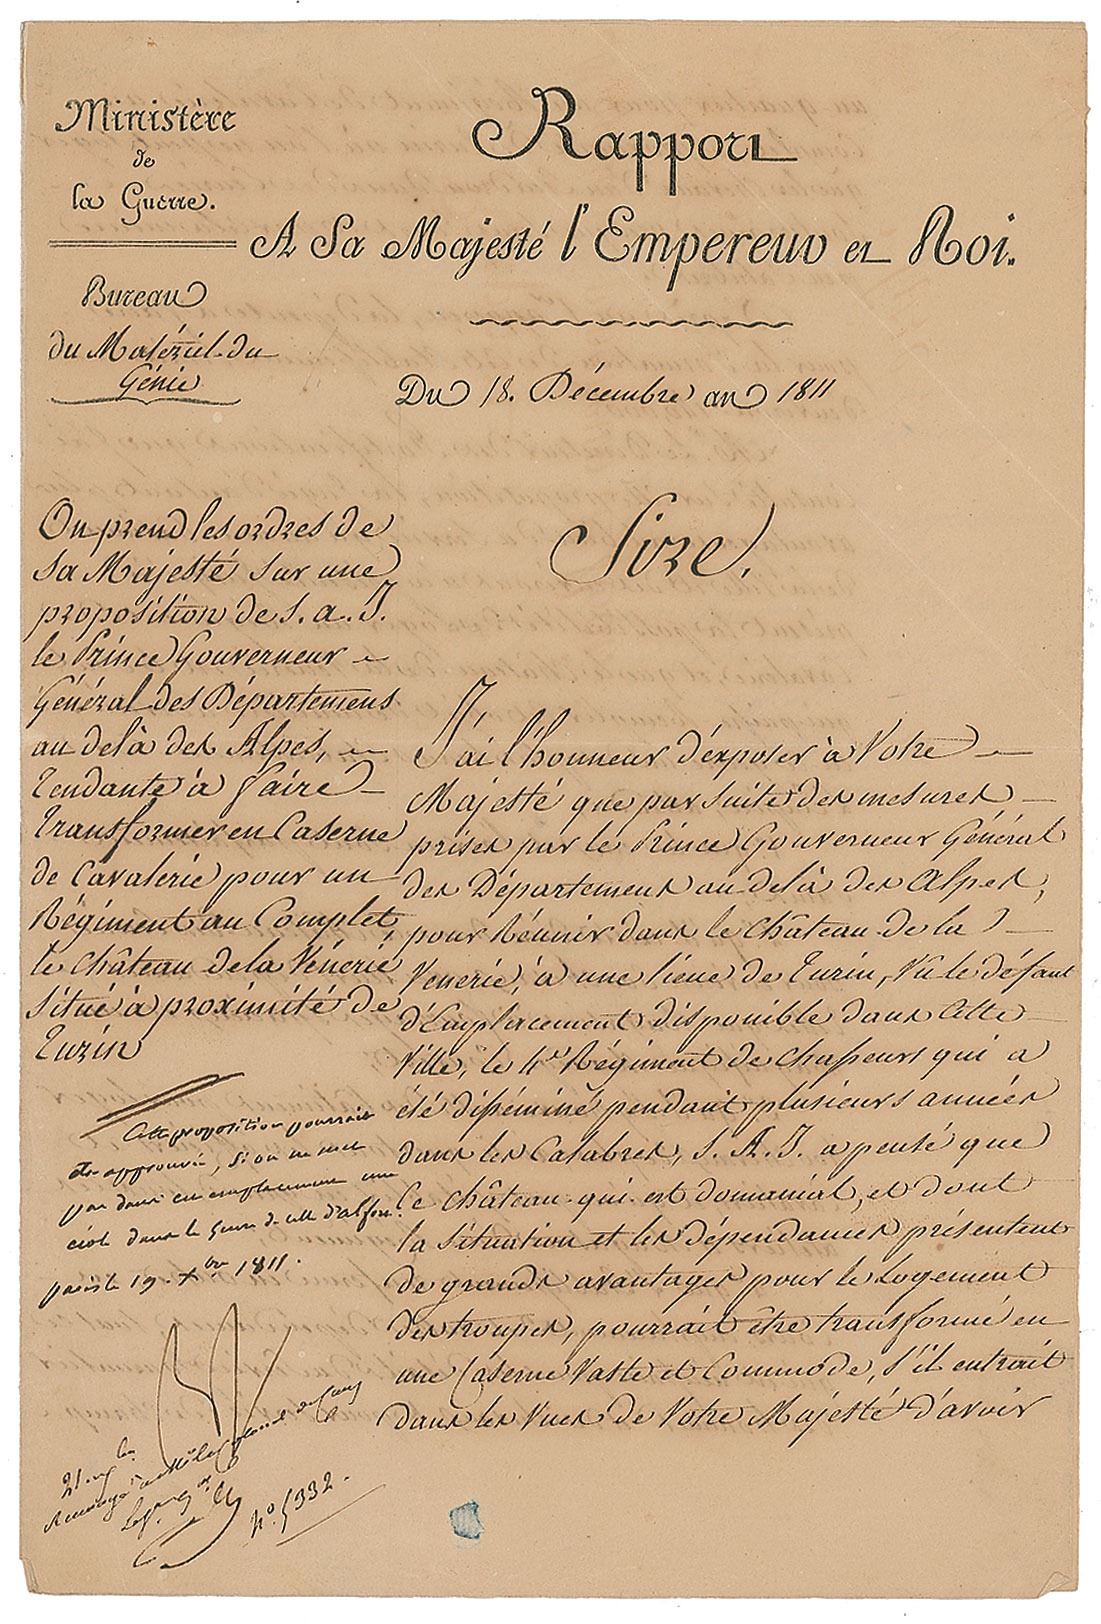 Ministère
de
la Guerre.
Bureau
du Matériel du
Génie
Rapport
A Sa Majesté l'Empereur et Roi.
Du 18. Décembre an 1811
On prend les ordres de
Sa Majesté sur une
proposition de S. A. I.
le Prince Gouverneur
Général des Départemens
au delà des Alpes,
tendante à faire
transformer en Caserne
de Cavalerie pour un
Régiment au Complet,
le château de la Vénerie,
situé à proximité de
Turin
Cette proposition pourrait
être approuvée, si on ne met
pas dans cet emplacement une
école dans le genre de celle d'alfort.
paris le 19. Xbre 1811.
N
renvoyé
N.º 5332.
Sire,
J'ai l'honneur d'exposer à Votre
Majesté que par suite des mesures
prises par le Prince Gouverneur Général
des Départemens au-delà des Alpes,
pour réunir dans le château de la
Venerie, à une lieue de Turin, vu le défaut
d'Emplacement disponible dans cette
Ville, le 4e Régiment de chasseurs qui a
été disséminé pendant plusieurs années
dans les Calabres, S. A. I. a pensé que
ce château qui est domanial, et dont
la situation et les dépendances présentent
de grands avantages pour le Logement
des troupes, pourrait être transformé en
une Caserne vaste et Commode, s'il entrait
dans les vues de Votre Majesté d'avoir